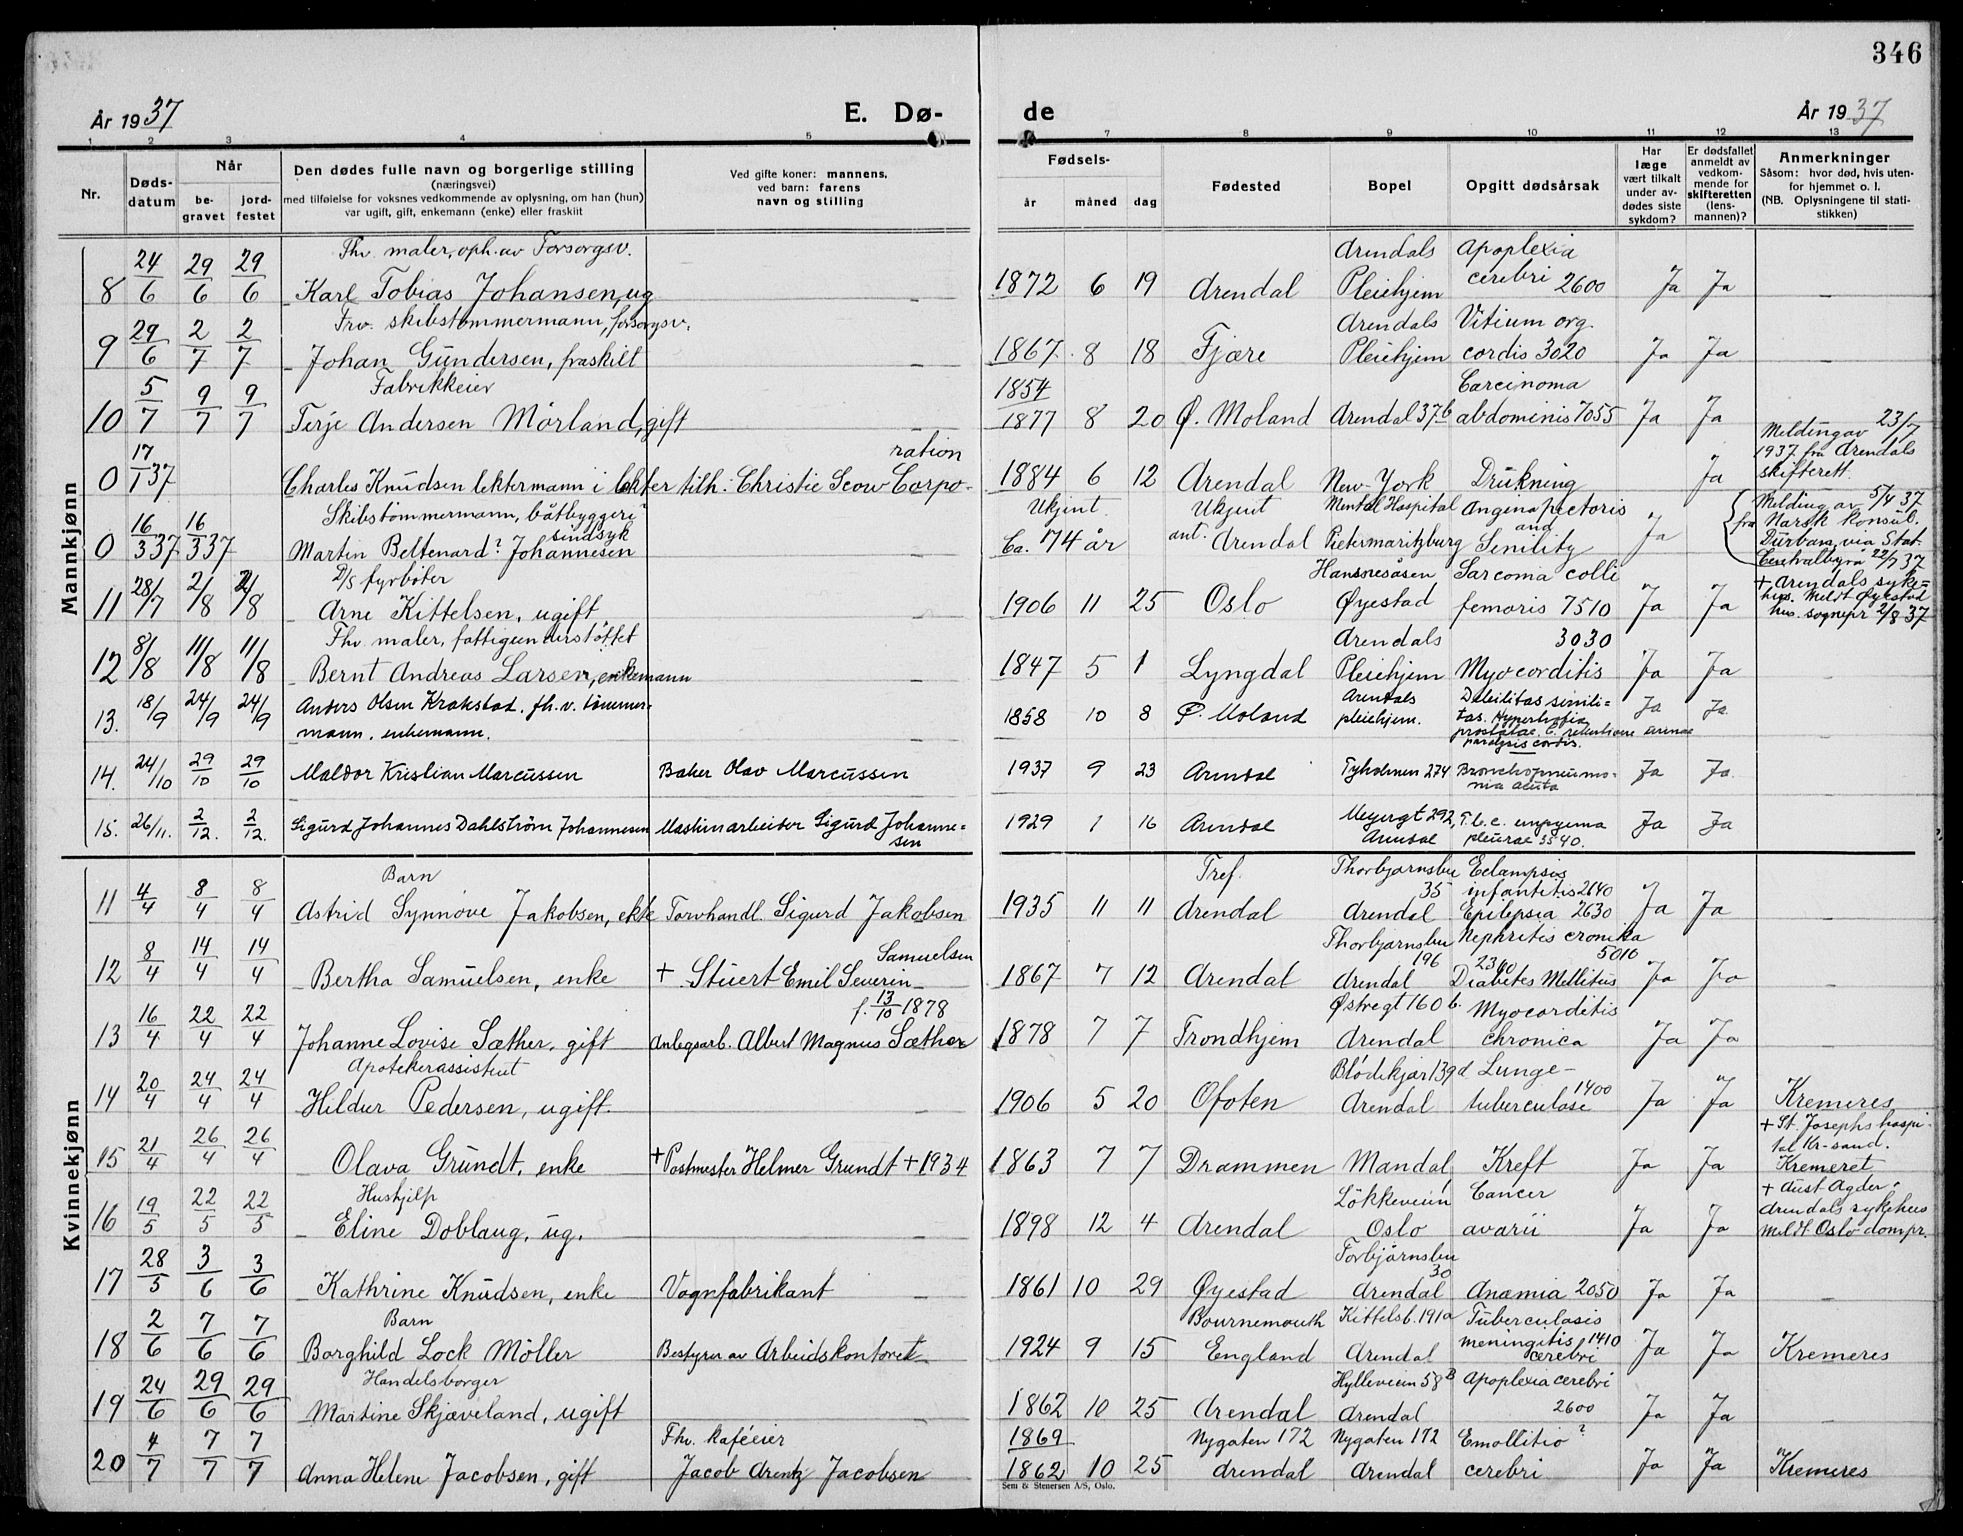 346
År 1937 E. Dø- de År 1937
1 2 3 4 5 7 8 9 10 11 12 13
Nr.
Døds-
datum
Når
be-
gravet
jord-
festet
Den dødes fulle navn og borgerlige stilling
(næringsvei)
med tilføielse for voksnes vedkommende av oplysning, om han (hun)
var ugift, gift, enkemann (enke) eller fraskilt
Ved gifte koner: mannens,
ved barn: farens
navn og stilling
Fødsels-
år måned dag
Fødested
Bopel
Opgitt dødsårsak
Har
læge
vært tilkalt
under av-
dødes siste
sykdom?
Er dødsfallet
anmeldt av
vedkom-
mende for
skifteretten
(lens-
mannen)?
Anmerkninger
Såsom: hvor død, hvis uten-
for hjemmet o. l.
(NB. Oplysningene til stati-
stikken)
Mannkjønn
Thv. maler, oph. av Forsorgsv. Arendals Apoplexia
8 24/6 29/6 29/6 Karl Tobias Johansen, ug — 1872 6 19 Arendal Pleiehjem cerebri 2600 Ja Ja —
Frv. skibstømmermann, forsorgsv. Arendals Vitium org.
9 29/6 2/7 2/7 Johan Gundersen, fraskilt — 1867 8 18 Fjære Pleiehjem cordis 3020 Ja Ja —
Fabrikkeier 1854 Carcinoma
10 5/7 9/7 9/7 Terje Andersen Mörland, gift — 1877 8 20 Ø. Moland Arendal 37b abdominis 7055 Ja Ja
ration Melding av 23/7
1937 fra Arendals
skifterett.
0 17/1 37 Charles Knudsen lektermann i lekter tilh. Christie Scow Corpo- 1884 6 12 Arendal New-York Drukning Ja
Skibstømmermann, båtbyggeri? Ukjent. Ukjent Mental Hospital Angina pectoris
sindsyk and
0 16/3 37 16/3 37 Martin Beltenard? Johannesen — Ca. 74 år ant. Arendal Pietermaritzburg Senility Ja
Melding av 5/4 37
fra Norsk Konsul.
Durban, via Stat.
Centralbyrå 22/7 37
D/S fyrböter Hansnesåsen Sarcoma colli
11 28/7 2/8 2/8 Arne Kittelsen, ugift — 1906 11 25 Oslo Øyestad femoris 7510 Ja Ja
+ Arendals syke=
hus. Meldt Øyestad
hus. sognepr 2/8 37
Thv. maler, fattigeunderstöttet Arendals 3030
12 8/8 11/8 11/8 Bernt Andreas Larsen, enkemann — 1847 5 1 Lyngdal Pleiehjem Myocorditis Ja Ja —
13. 18/9 24/9 24/9 Anders Olsen Krakstad. fh.v. tømmer-
mann. enkemann. 1858 10 8 Ø. Moland Arendals
pleiehjem. Debilitas senili=
tas. Hypertrofia
prostatae. c. retentione urinae
paralysis cordis. Ja Ja —
14. 24/10 29/10 29/10 Maldor Kristian Marcussen Baker Olav Marcussen 1937 9 23 Arendal Tyholmen 274 Bronchopneumo-
nia acuta Ja Ja. —
15. 26/11. 2/12. 2/12. Sigurd Johannes Dahlström Johannesen Maskinarbeider Sigurd Johanne=
sen 1929 1 16 Arendal Meyergt 292,
Arendal T.b.c. empyema
pleurae 3540. Ja Ja —
Kvinnekjønn
Barn Tref. Thorbjørnsbu Eclampsis
35 infantitis 2640
11 4/4 8/4 8/4 Astrid Synnöve Jakobsen, ekte Torvhandl. Sigurd Jakobsen 1935 11 11 Arendal Arendal Epilepsia 2630 Ja Ja —
Samuelsen Thorbjørnsbu Nephritis cronika
196 2360 5010
12 8/4 14/4 14/4 Bertha Samuelsen, enke + Stuert Emil Severin 1867 7 12 Arendal Arendal Diabetes Mellitus Ja Ja —
f. 13/10 1878 Østregt 160 b. Myocorditis
13 16/4 22/4 22/4 Johanne Lovise Sæther, gift Anlegsarb. Albert Magnus Sæther 1878 7 7 Trondhjem Arendal chronica Ja Ja —
Apotekerassistent Blødekjær 139d Lunge-
14 20/4 24/4 24/4 Hildur Pedersen, ugift. — 1906 5 20 Ofoten Arendal tuberculose 1400 Ja Ja Kremeres
+ St. Josephs hospi-
tal Kr-sand.
15 21/4 26/4 26/4 Olava Grundt, enke + Postmester Helmer Grundt + 1934 1863 7 7 Drammen Mandal Kreft Ja Ja Kremeret
Hushjelp Lökkeveien Cancer + Aust Agder.
Arendals sykehus
16 19/5 22/5 22/5 Eline Doblaug, ug. — 1898 12 4 Arendal Oslo avarii Ja Ja Meldt Oslo dompr.
Torbjörnsbu
30
17 28/5 3/6 3/6 Kathrine Knudsen, enke Vognfabrikant 1861 10 29 Øyestad Arendal Anæmia 2050 Ja Ja —
Barn Bournemouth Kittelsb. 191a Tuberculosis
meningitis 1410
18 2/6 7/6 7/6 Borghild Lock Möller Bestyrer av Arbeidskontoret 1924 9 15 England Arendal cerebri Ja Ja Kremeres
Handelsborger Hylleveien 58B Apoplexia cerebri
19 24/6 29/6 29/6 Martine Skjæveland, ugift — 1862 10 25 Arendal Arendal 2600 Ja Ja —
Fhv. kaféeier 1869 Nygaten 172 Nygaten 172 Emollitio?
20 4/7 7/7 7/7 Anna Helene Jacobsen, gift Jacob Arentz Jacobsen 1862 10 25 Arendal Arendal cerebri Ja Ja Kremeres
Sem & Stenersen A/S, Oslo.